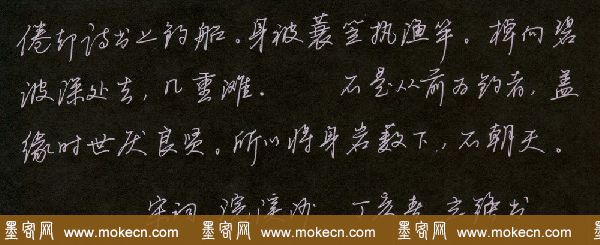 倦却诗书上钓船。身被蓑笠执渔竿。棹向碧
波深处去,几重滩. 不是从前为钓者,盖
缘时世厌良贤。所以将身岩薮下,不朝天。
宋词 浣溪沙 丁亥春 书
墨客网 www.mokecn.com 墨客网 www.mokecn.com 墨客网 www.mokecn.com